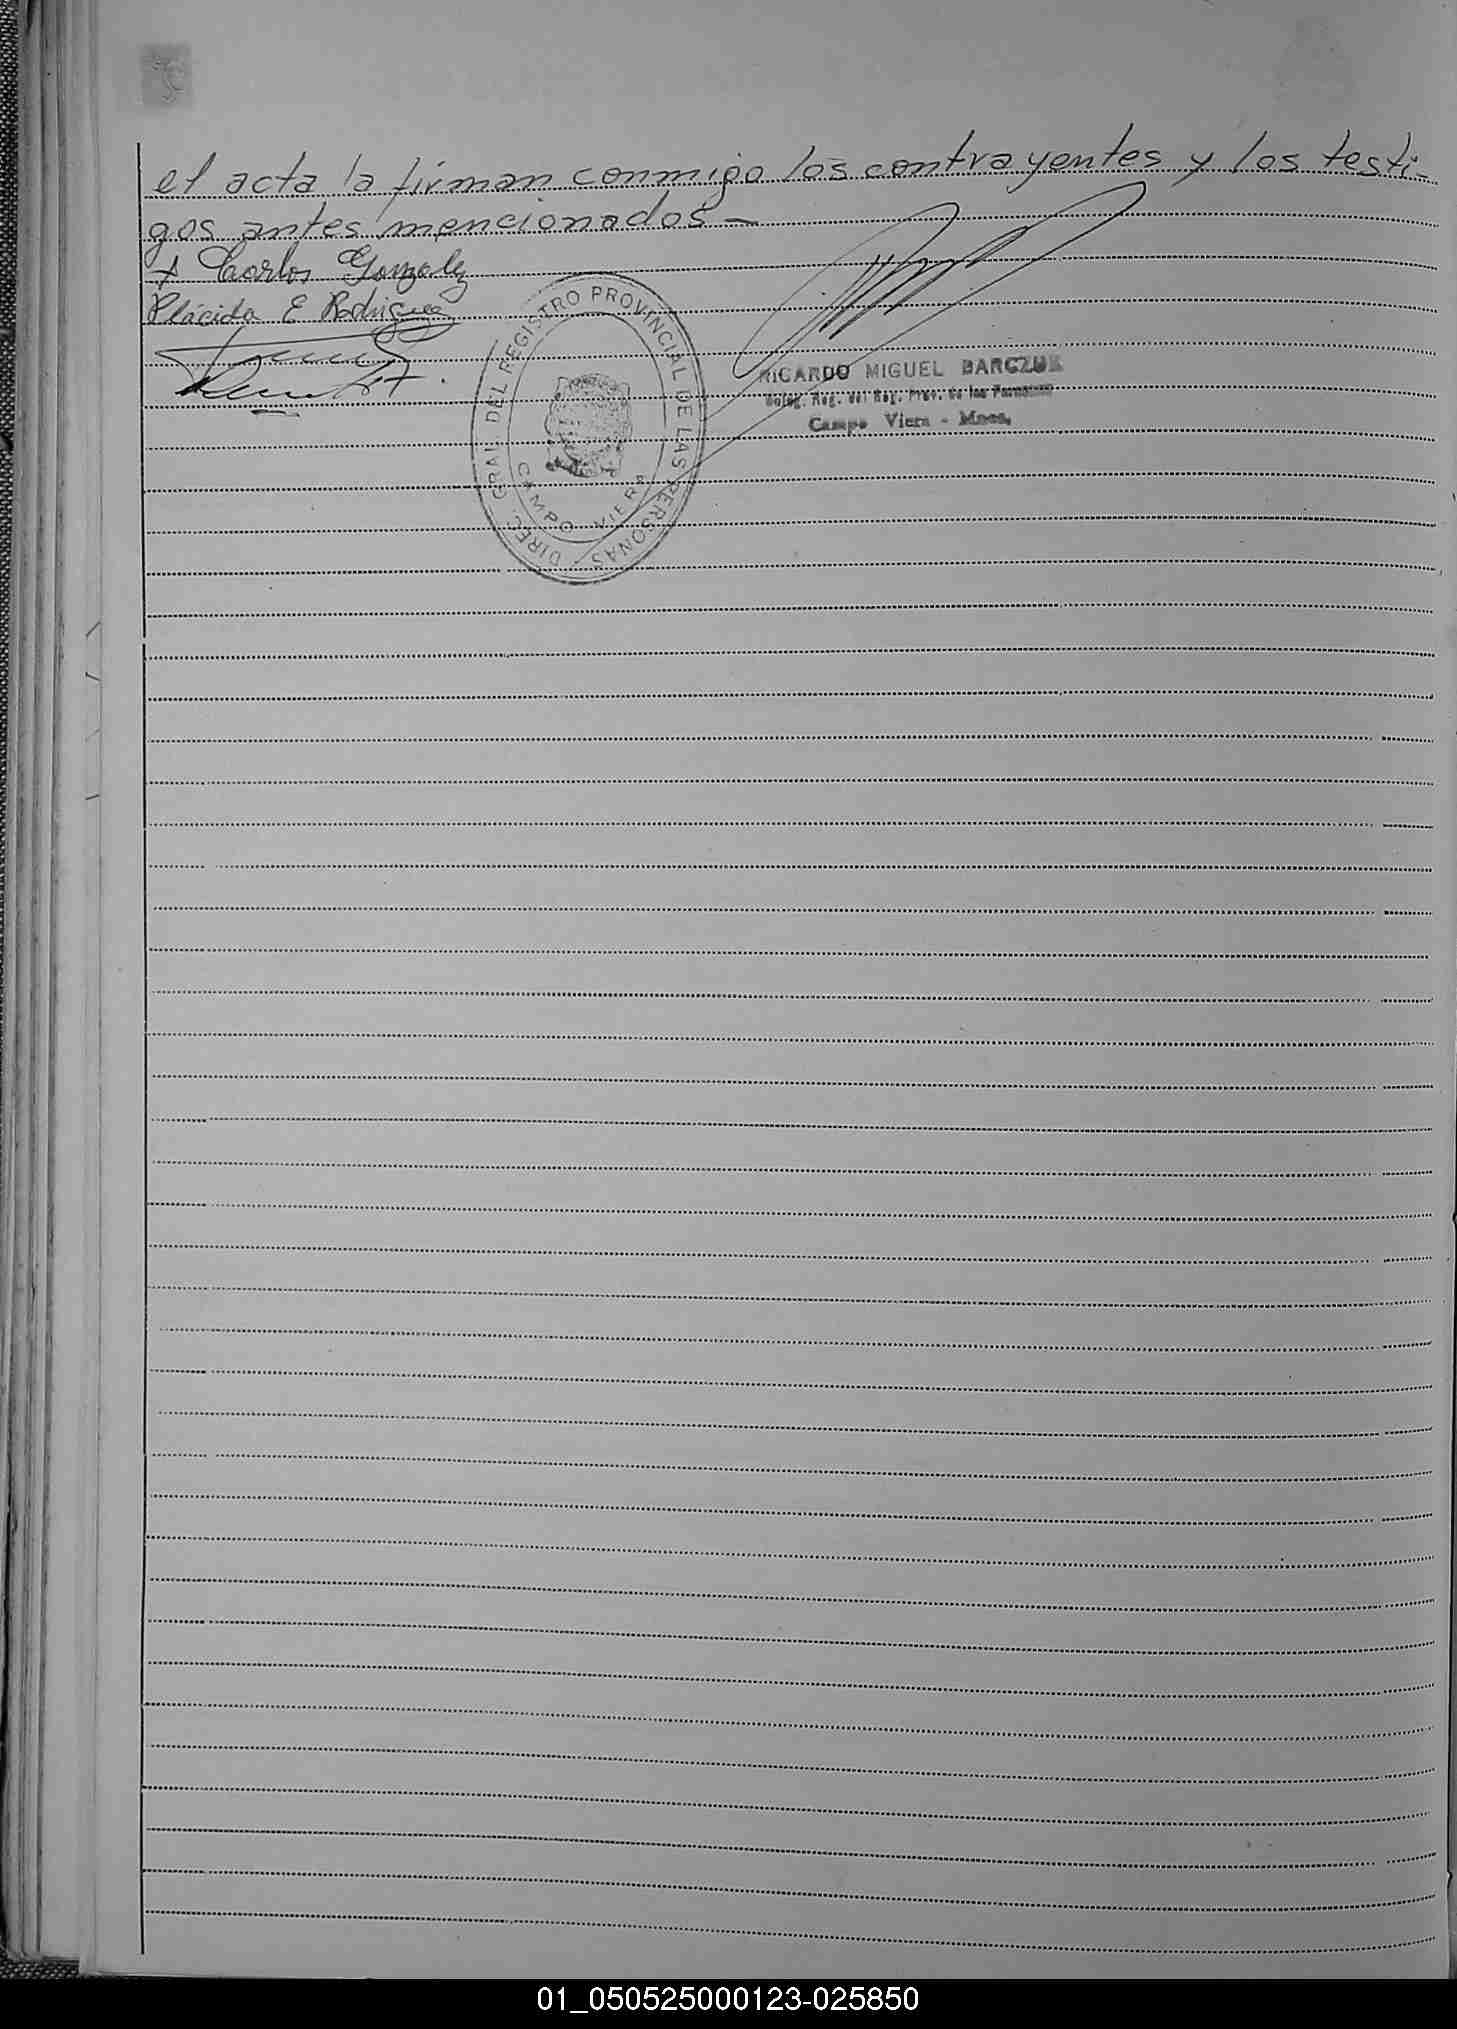 el acta la firman conmigo los contrayentes y los testi-
gos antes mencionados-
+ Carlos Gonzalez
Plácida E Rodriguez
DIREC. GRAL. DEL REGISTRO PROVINCIAL DE LAS PERSONAS
CAMPO VIERA
RICARDO MIGUEL BARCZUK
Deleg. Reg. del Reg. Prov. de las Personas
Campo Viera - Mnes.
01_050525000123-025850